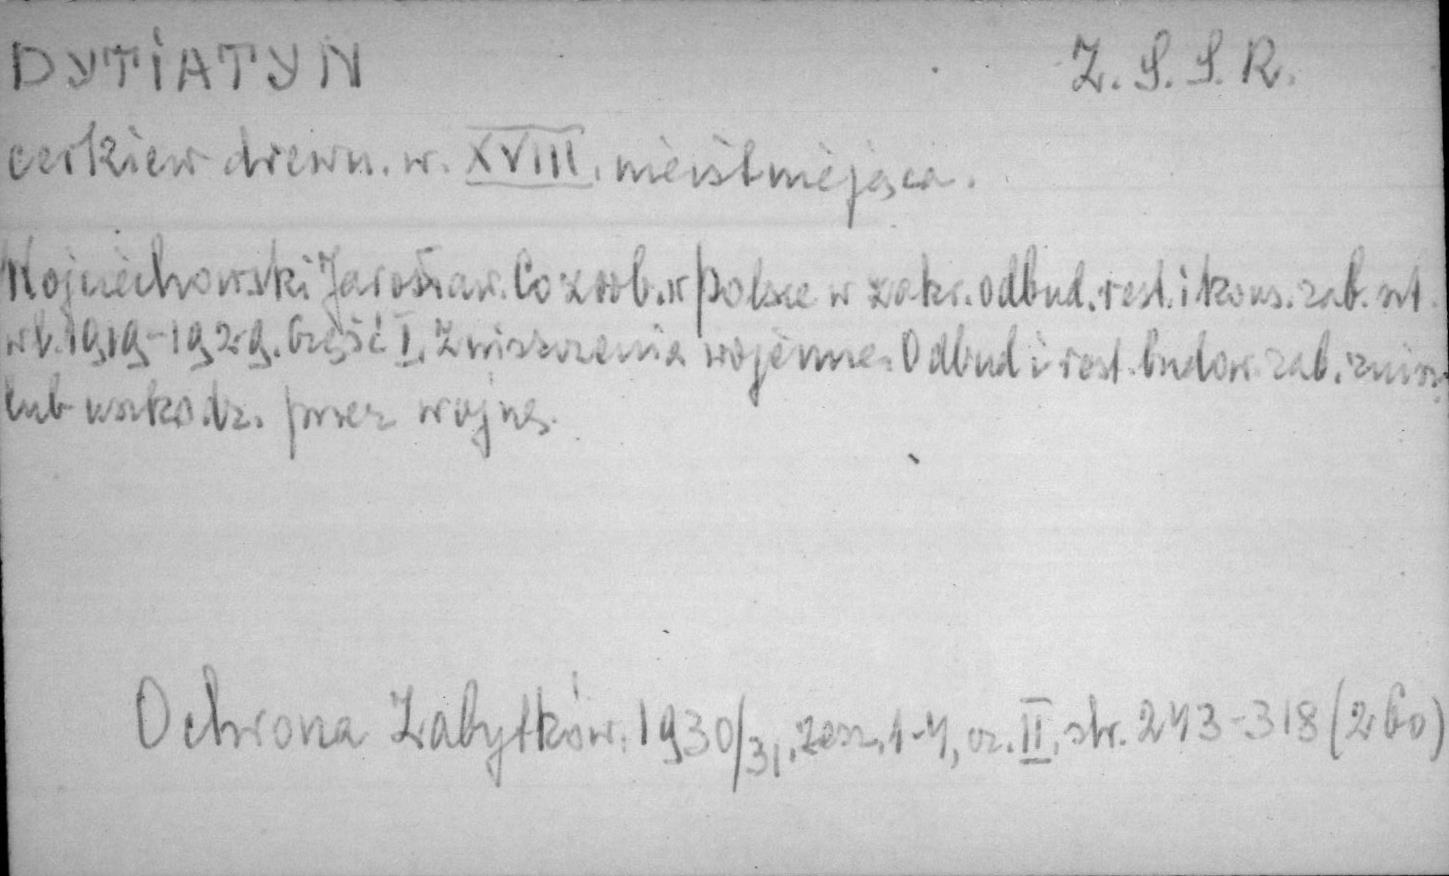 DYTIATYN Z.S.S.R.
cerkiew drewn. w. XVIII. nieistniejąca.
Wojciechowski Jarosław. Co zrob. w Polsce w zakr. odbud. rest. i kons. zab. szt.
w l. 1919-1929. Część I. Zniszczenia wojenne. Odbud i rest. budow. zab. zniszcz.
lub uszkodz. przez wojnę.
Ochrona Zabytków. 1930/31. zesz. 1-4, cz. II, str. 243-318 (260)